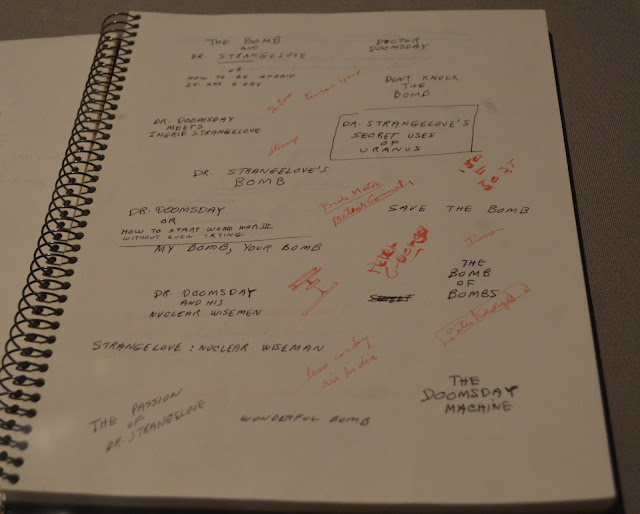 THE BOMB
AND
DR. STRANGELOVE
OR
HOW TO BE AFRAID
24 HRS A DAY
DOCTOR
DOOMSDAY
DON'T KNOCK
THE
BOMB
DR. DOOMSDAY
MEETS
INGRID STRANGELOVE
DR. STRANGELOVE'S
SECRET USES
OF
URANUS
DR. STRANGELOVE'S
BOMB
DR. DOOMSDAY
OR
HOW TO START WORLD WAR III
WITHOUT EVEN TRYING
SAVE THE BOMB
MY BOMB, YOUR BOMB
Peter
George
THE
BOMB
OF
BOMBS
DR. DOOMSDAY
AND HIS
NUCLEAR WISEMEN
STRANGELOVE: NUCLEAR WISEMAN
THE PASSION
OF
DR. STRANGELOVE
WONDERFUL BOMB
THE
DOOMSDAY
MACHINE